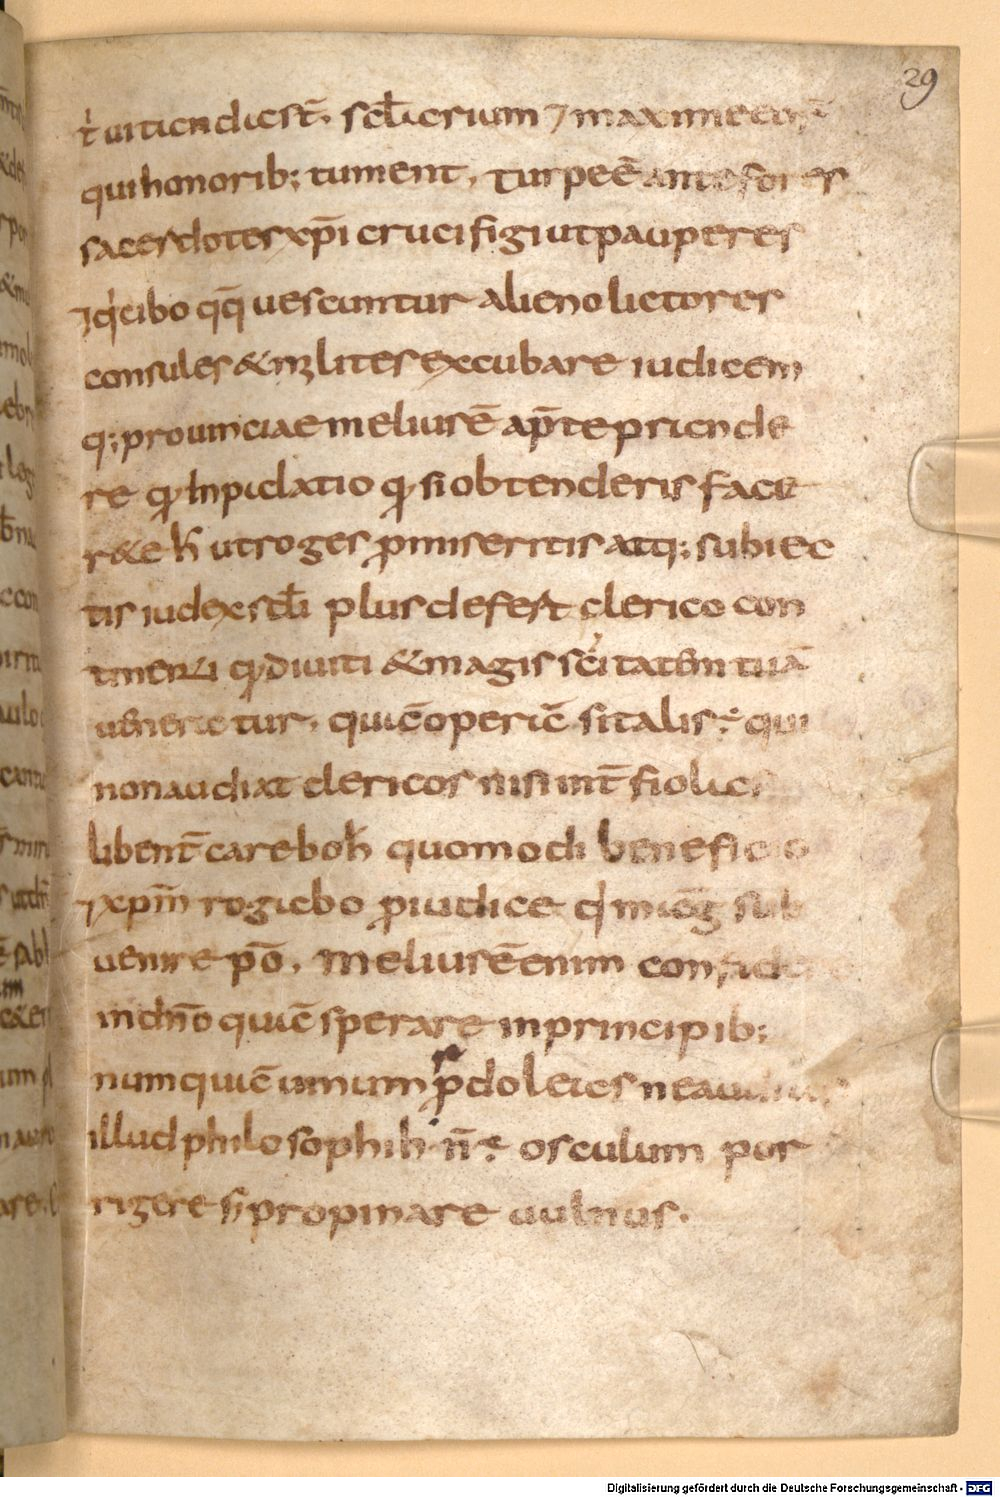 29
t̄ uitien di est̄. scl̄i erum ⁊ maxime eor̄
qui honorib; tument, Turpe ē ante fores
sacerdotes xp̄i crucifigi ut pauperes
⁊ q' cibo qq̄ uescuntur alieno lictores
consules & milites excubare iudicem
q; prouinciae melius ē ap̄ te priende
re qꝫ In pidlatio qꝫ si obtenderis face
r& e h̄ ut roges ꝓ miseritis atq; subiec
tis iudex scl̄i plus defert clerico con
tinenti qꝫ diuiti & magis sc̄itatem tuā
uenerætur. qui ē operi ē si talis ÷ qui
non audiat clericos nisi int̄ fiolic
libent̄ carebo h̄ quomodi beneficio
⁊ xpm̄ rogiebo ꝓ iudice q' mi eg sub
uenire pō. Melius ē enim confidere
in dn̄o qui ē sperare in principib;
numqui ē unum pdoleies ne
illud philosophi h' n̄ ÷ osculum por
rigere s̄ propinare uulnus.
Digitalisierung gefördert durch die Deutsche Forschungsgemeinschaft - DFG